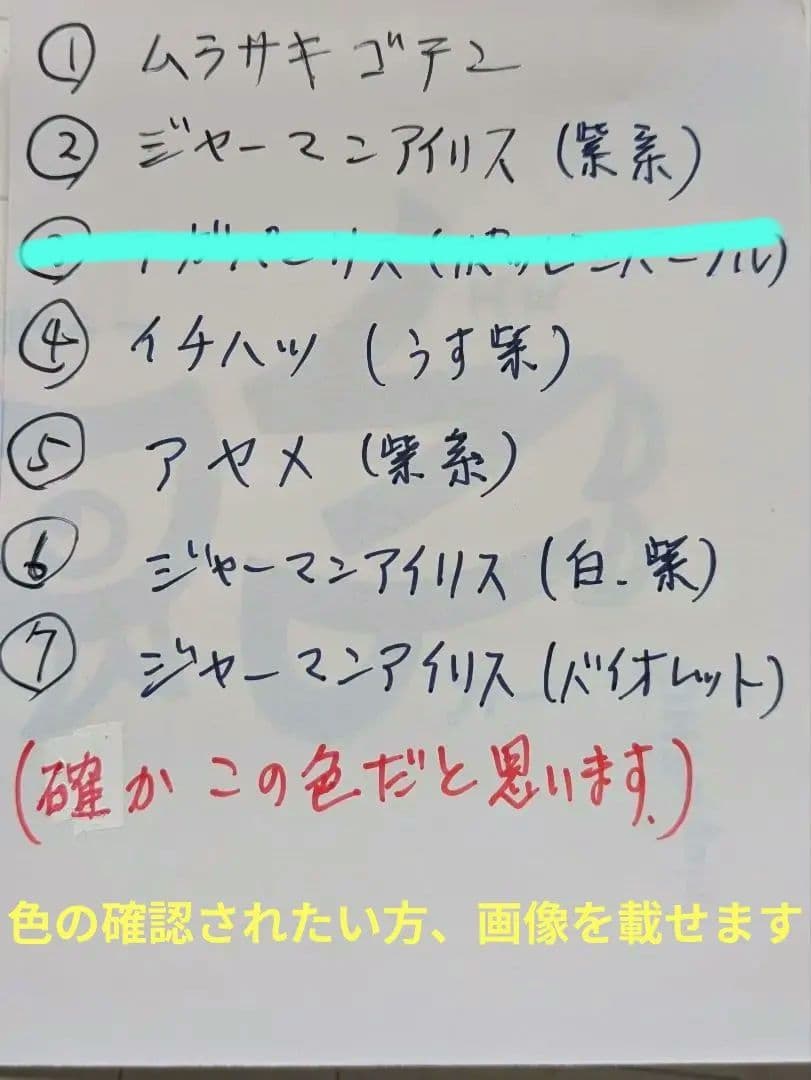 ① ムラサキゴテン
② ジャーマンアイリス (紫系)
④ イチハツ (うす紫)
⑤ アヤメ (紫系)
⑥ ジャーマンアイリス (白、紫)
⑦ ジャーマンアイリス (バイオレット)
(確かこの色だと思います。)
色の確認されたい方、画像を載せます